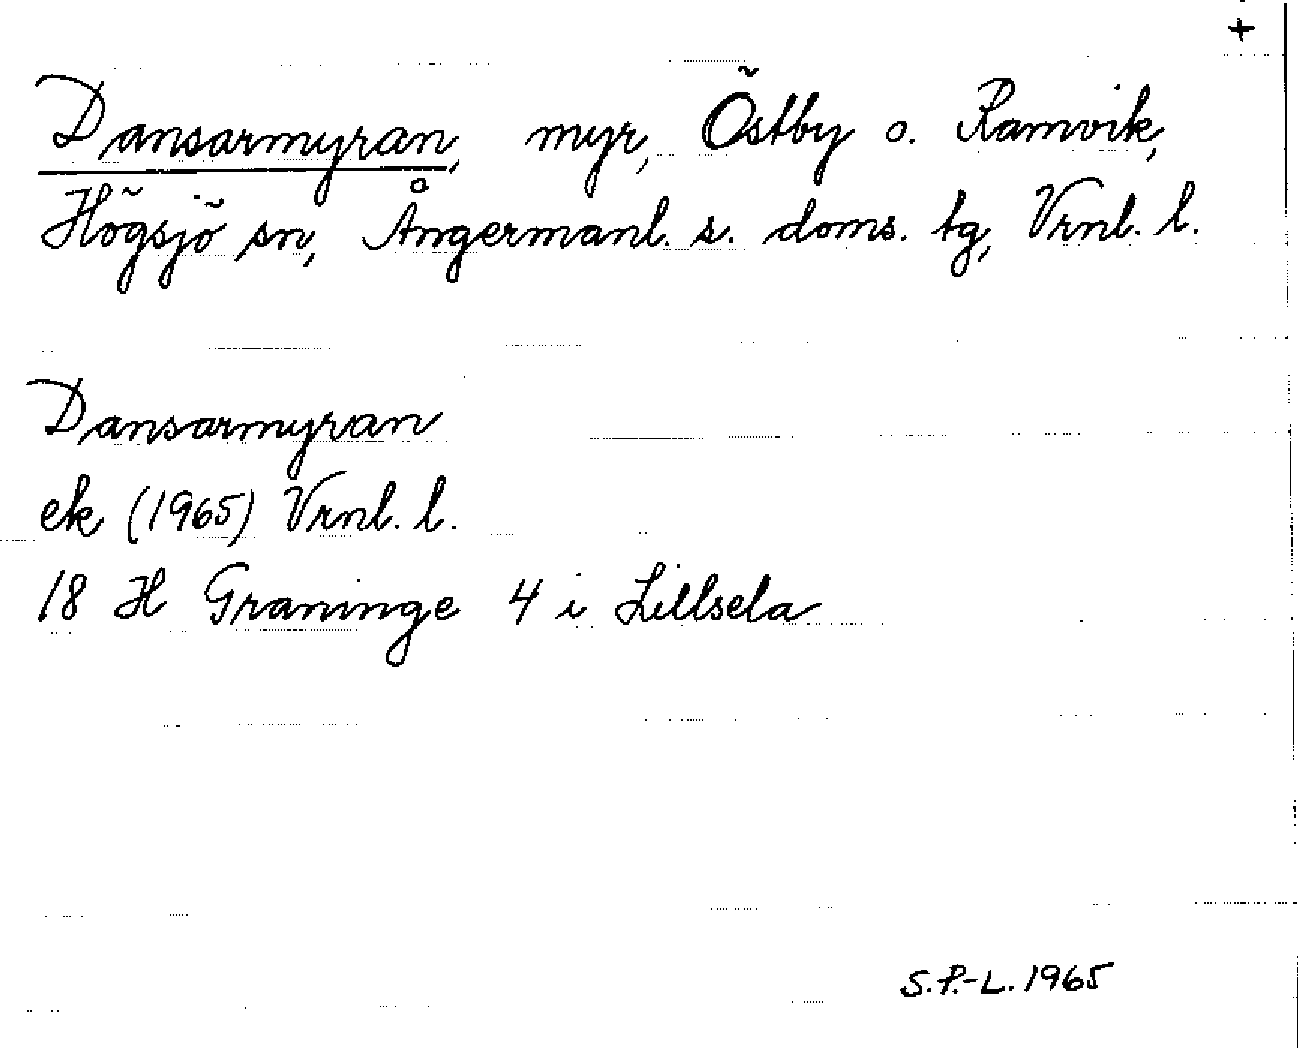 +
Dansarmyran, myr, Östby o. Ramvik,
Högsjö sn, Ångermanl. s. doms. tg, Vrnl. l.
Dansarmyran
ek (1965) Vrnl. l.
18 H Graninge 4 i Lillsela
S.P.-L. 1965